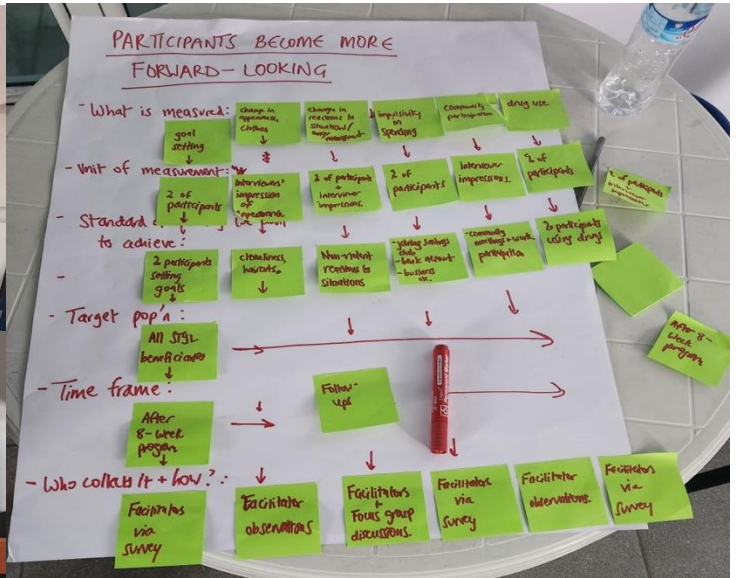 PARTICIPANTS BECOME MORE
FORWARD-LOOKING
- What is measured:
goal
setting
change in
appearance,
clothes
changes in
reactions to
situations/
impulsivity
in
spending
community
participation
drug use
- Unit of measurement:
# of
participants
Interviewers'
impression
of
appearance
# of participants
+
interviewer
impressions.
# of
participants
Interviewer
impressions.
# of
participants
# of participants
+
interviewer
impressions.
- Standard
to achieve:
# participants
setting
goals
cleanliness,
haircuts.
Non-violent
reactions to
situations
- joining savings
club
- bank account
- business
etc.
- community
meetings + work
participation
participants
using drugs
-
- Target pop'n:
All STYL
beneficiaries
After 8-
week
program
- Time frame:
After
8-week
program
Follow-
ups
- Who collects it + how?:
Facilitators
via
survey
Facilitator
observations
Facilitators
+
Focus group
discussions.
Facilitators
via
survey
Facilitator
observations.
Facilitators
via
survey